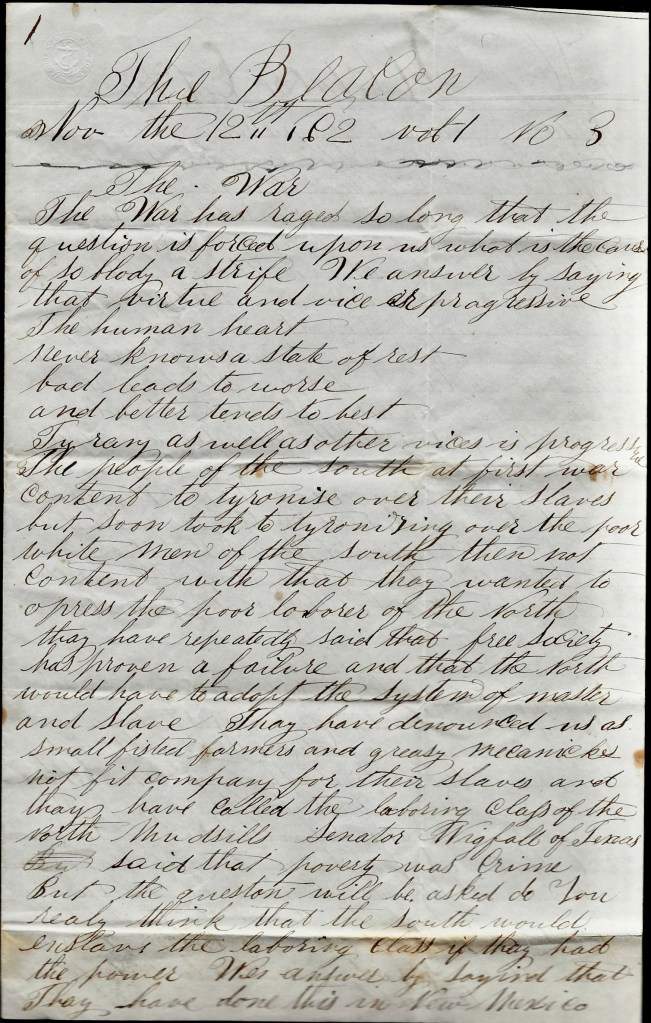 1
The Beacon
Nov the 12th 1862 vol 1 No 3
The War
The War has raged so long that the
question is forced upon us what is the cause
of so blody a strife We answer by saying
that virtue and vice is progressive
The human heart
never knows a state of rest
bad leads to worse
and better tends to best
Tyrany as well as other vices is progressive
The people of the south at first war
content to tyronise over their slaves
but soon took to tyronizing over the poor
white men of the south then not
content with that thay wanted to
opress the poor laborer of the North
thay have repeatedly said that free society
has proven a failure and that the North
would have to adopt the system of master
and slave Thay have denounced us as
small fisted farmers and greasy mecanicks
not fit company for their slaves and
thay have called the laboring class of the
North Mudsills Senator Wigfall of Texas
said that poverty was crime
But the queston will be asked do You
realy think that the south would
enslave the laboring class if thay had
the power Wes answer by sayind that
Thay have done this in New Mexico